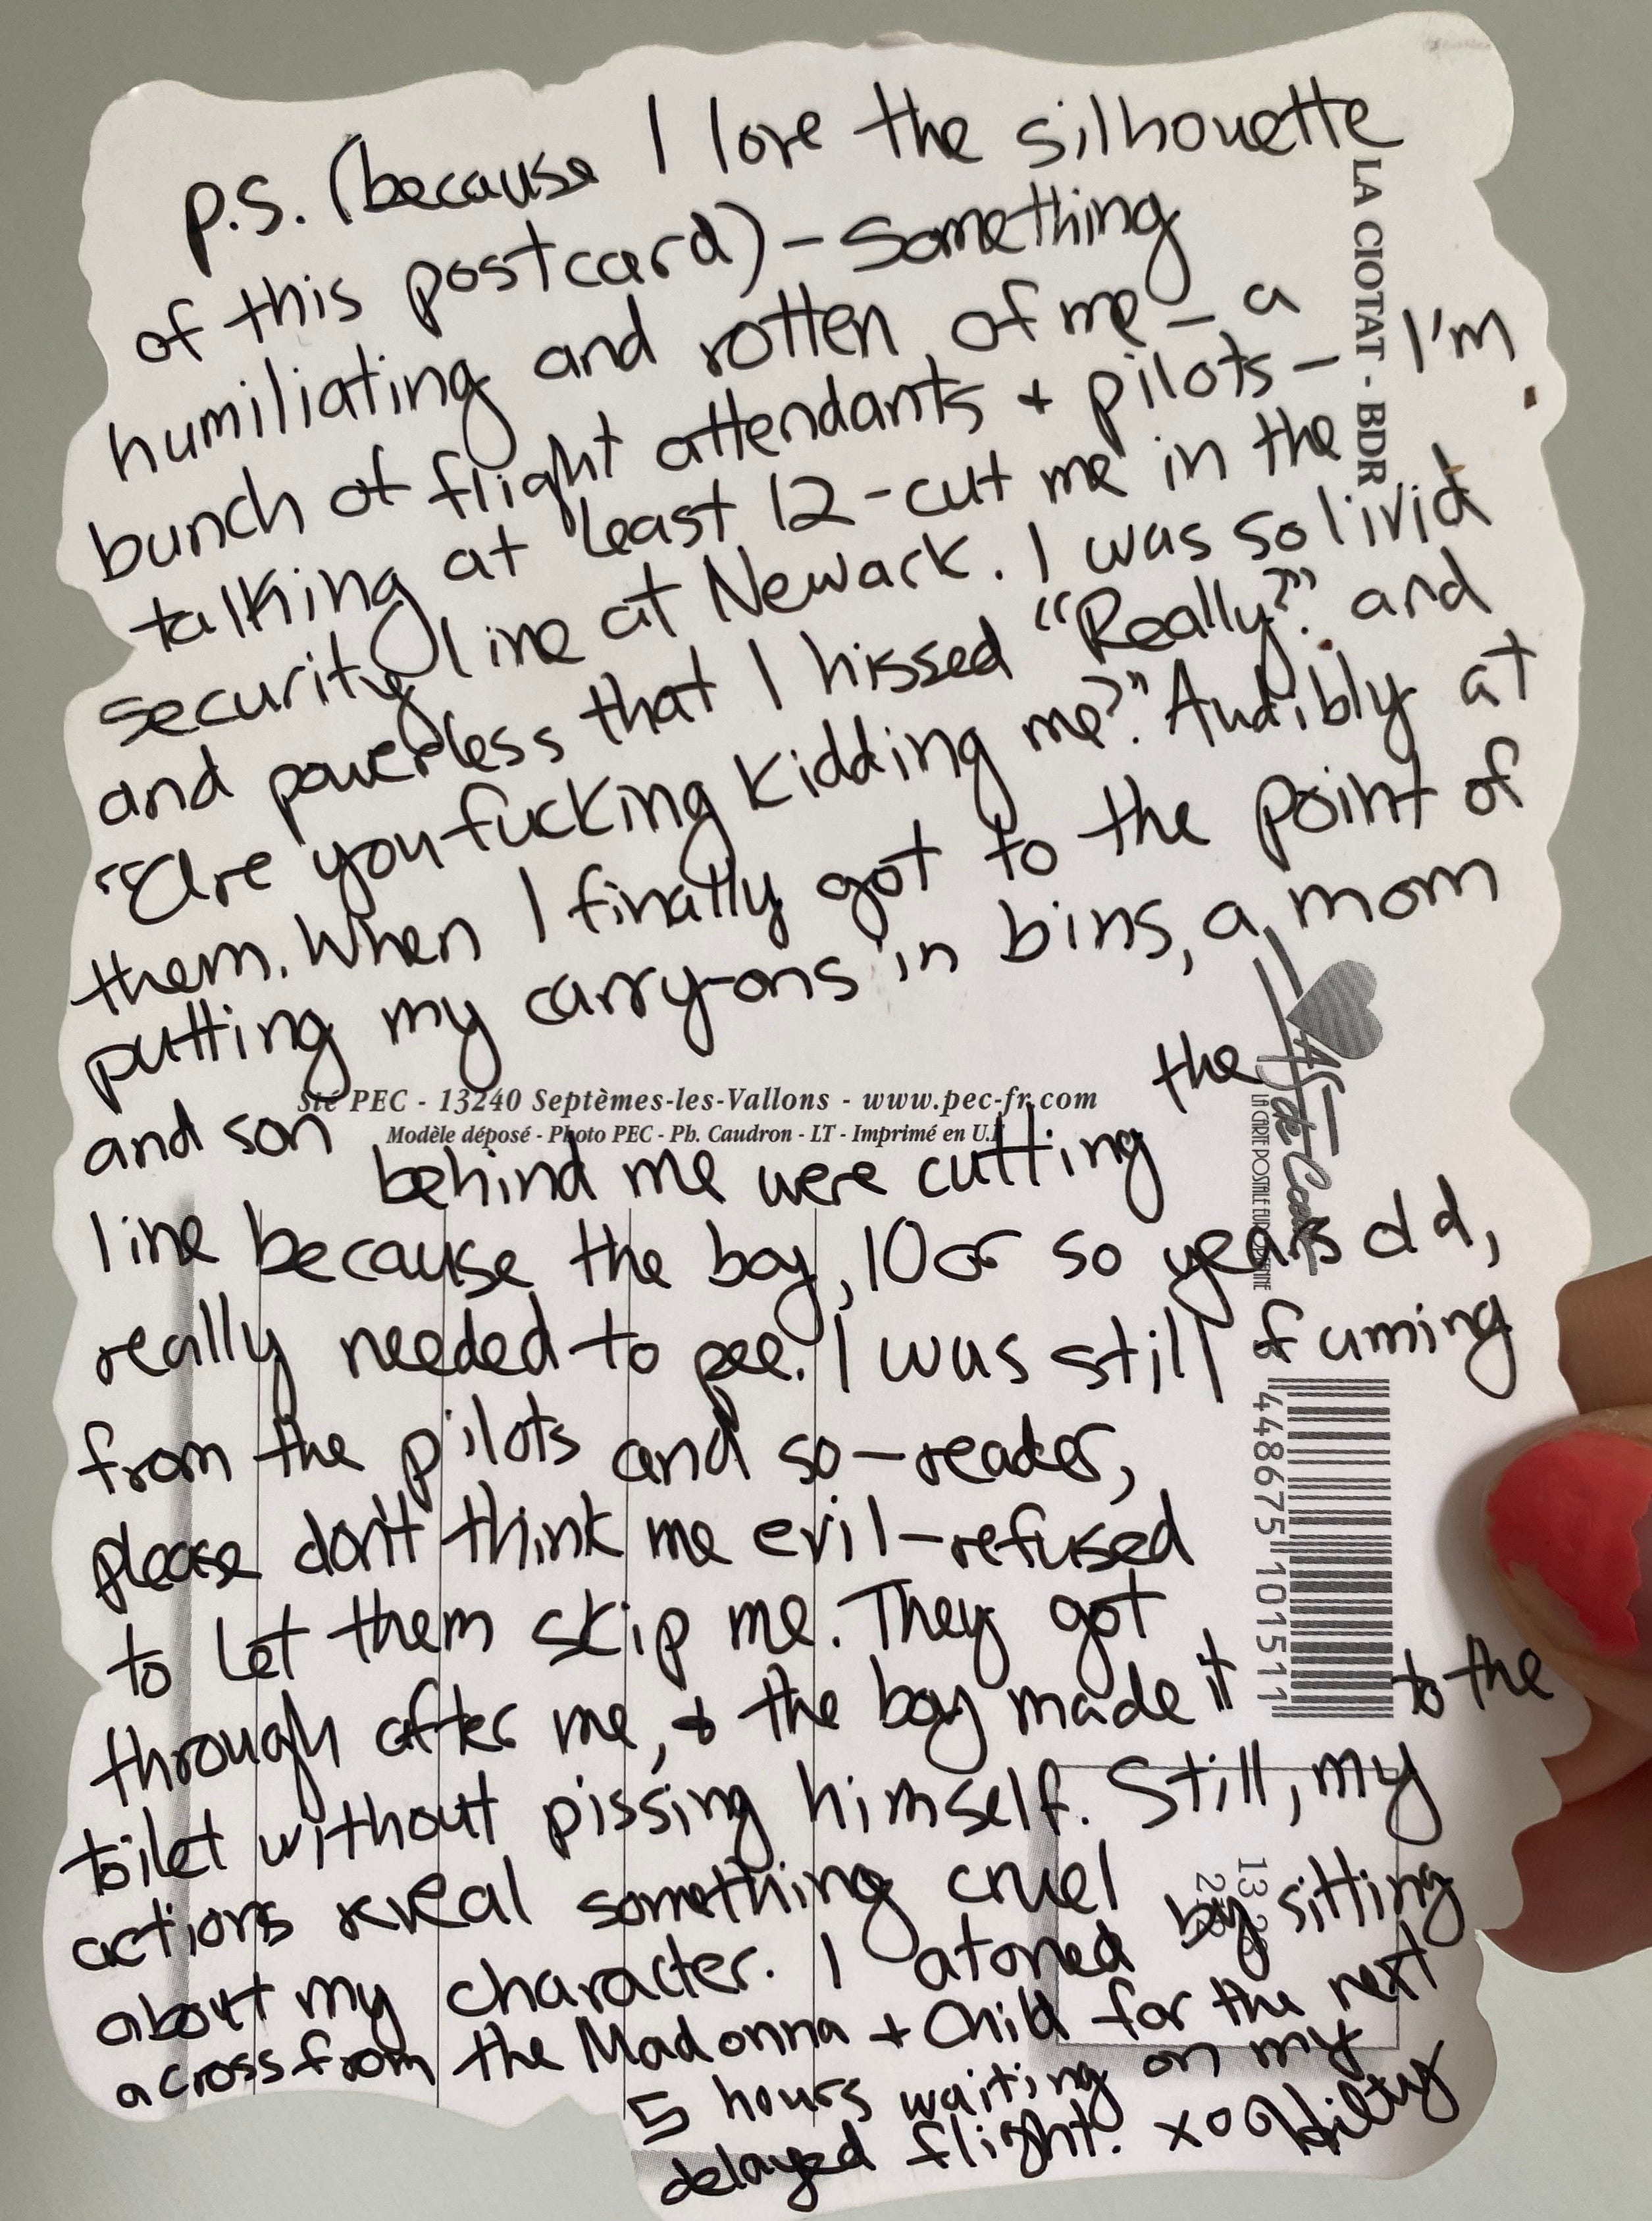 p.s. (because I love the silhouette
of this postcard) – Something
humiliating and rotten of me – a
bunch of flight attendants + pilots – I'm
talking at least 12 - cut me in the
security line at Newark. I was so livid
and powerless that I hissed "Really?" and
"Are you fucking kidding me?" Audibly at
them. When I finally got to the point of
putting my carry-ons in bins, a mom
and son behind me were cutting the
line because the boy, 10 or so years old,
really needed to pee. I was still fuming
from the pilots and so – reader,
please don't think me evil – refused
to let them skip me. They got
through after me, + the boy made it to the
toilet without pissing himself. Still, my
actions reveal something cruel
about my character. I atoned by sitting
across from the Madonna + Child for the next
5 hours waiting on my
delayed flight. xo Hilty
Sté PEC - 13240 Septèmes-les-Vallons - www.pec-fr.com
Modèle déposé - Photo PEC - Ph. Caudron - LT - Imprimé en U.E
LA CIOTAT - BDR
As de Cœur
LA CARTE POSTALE EUROPÉENNE
448675 101511